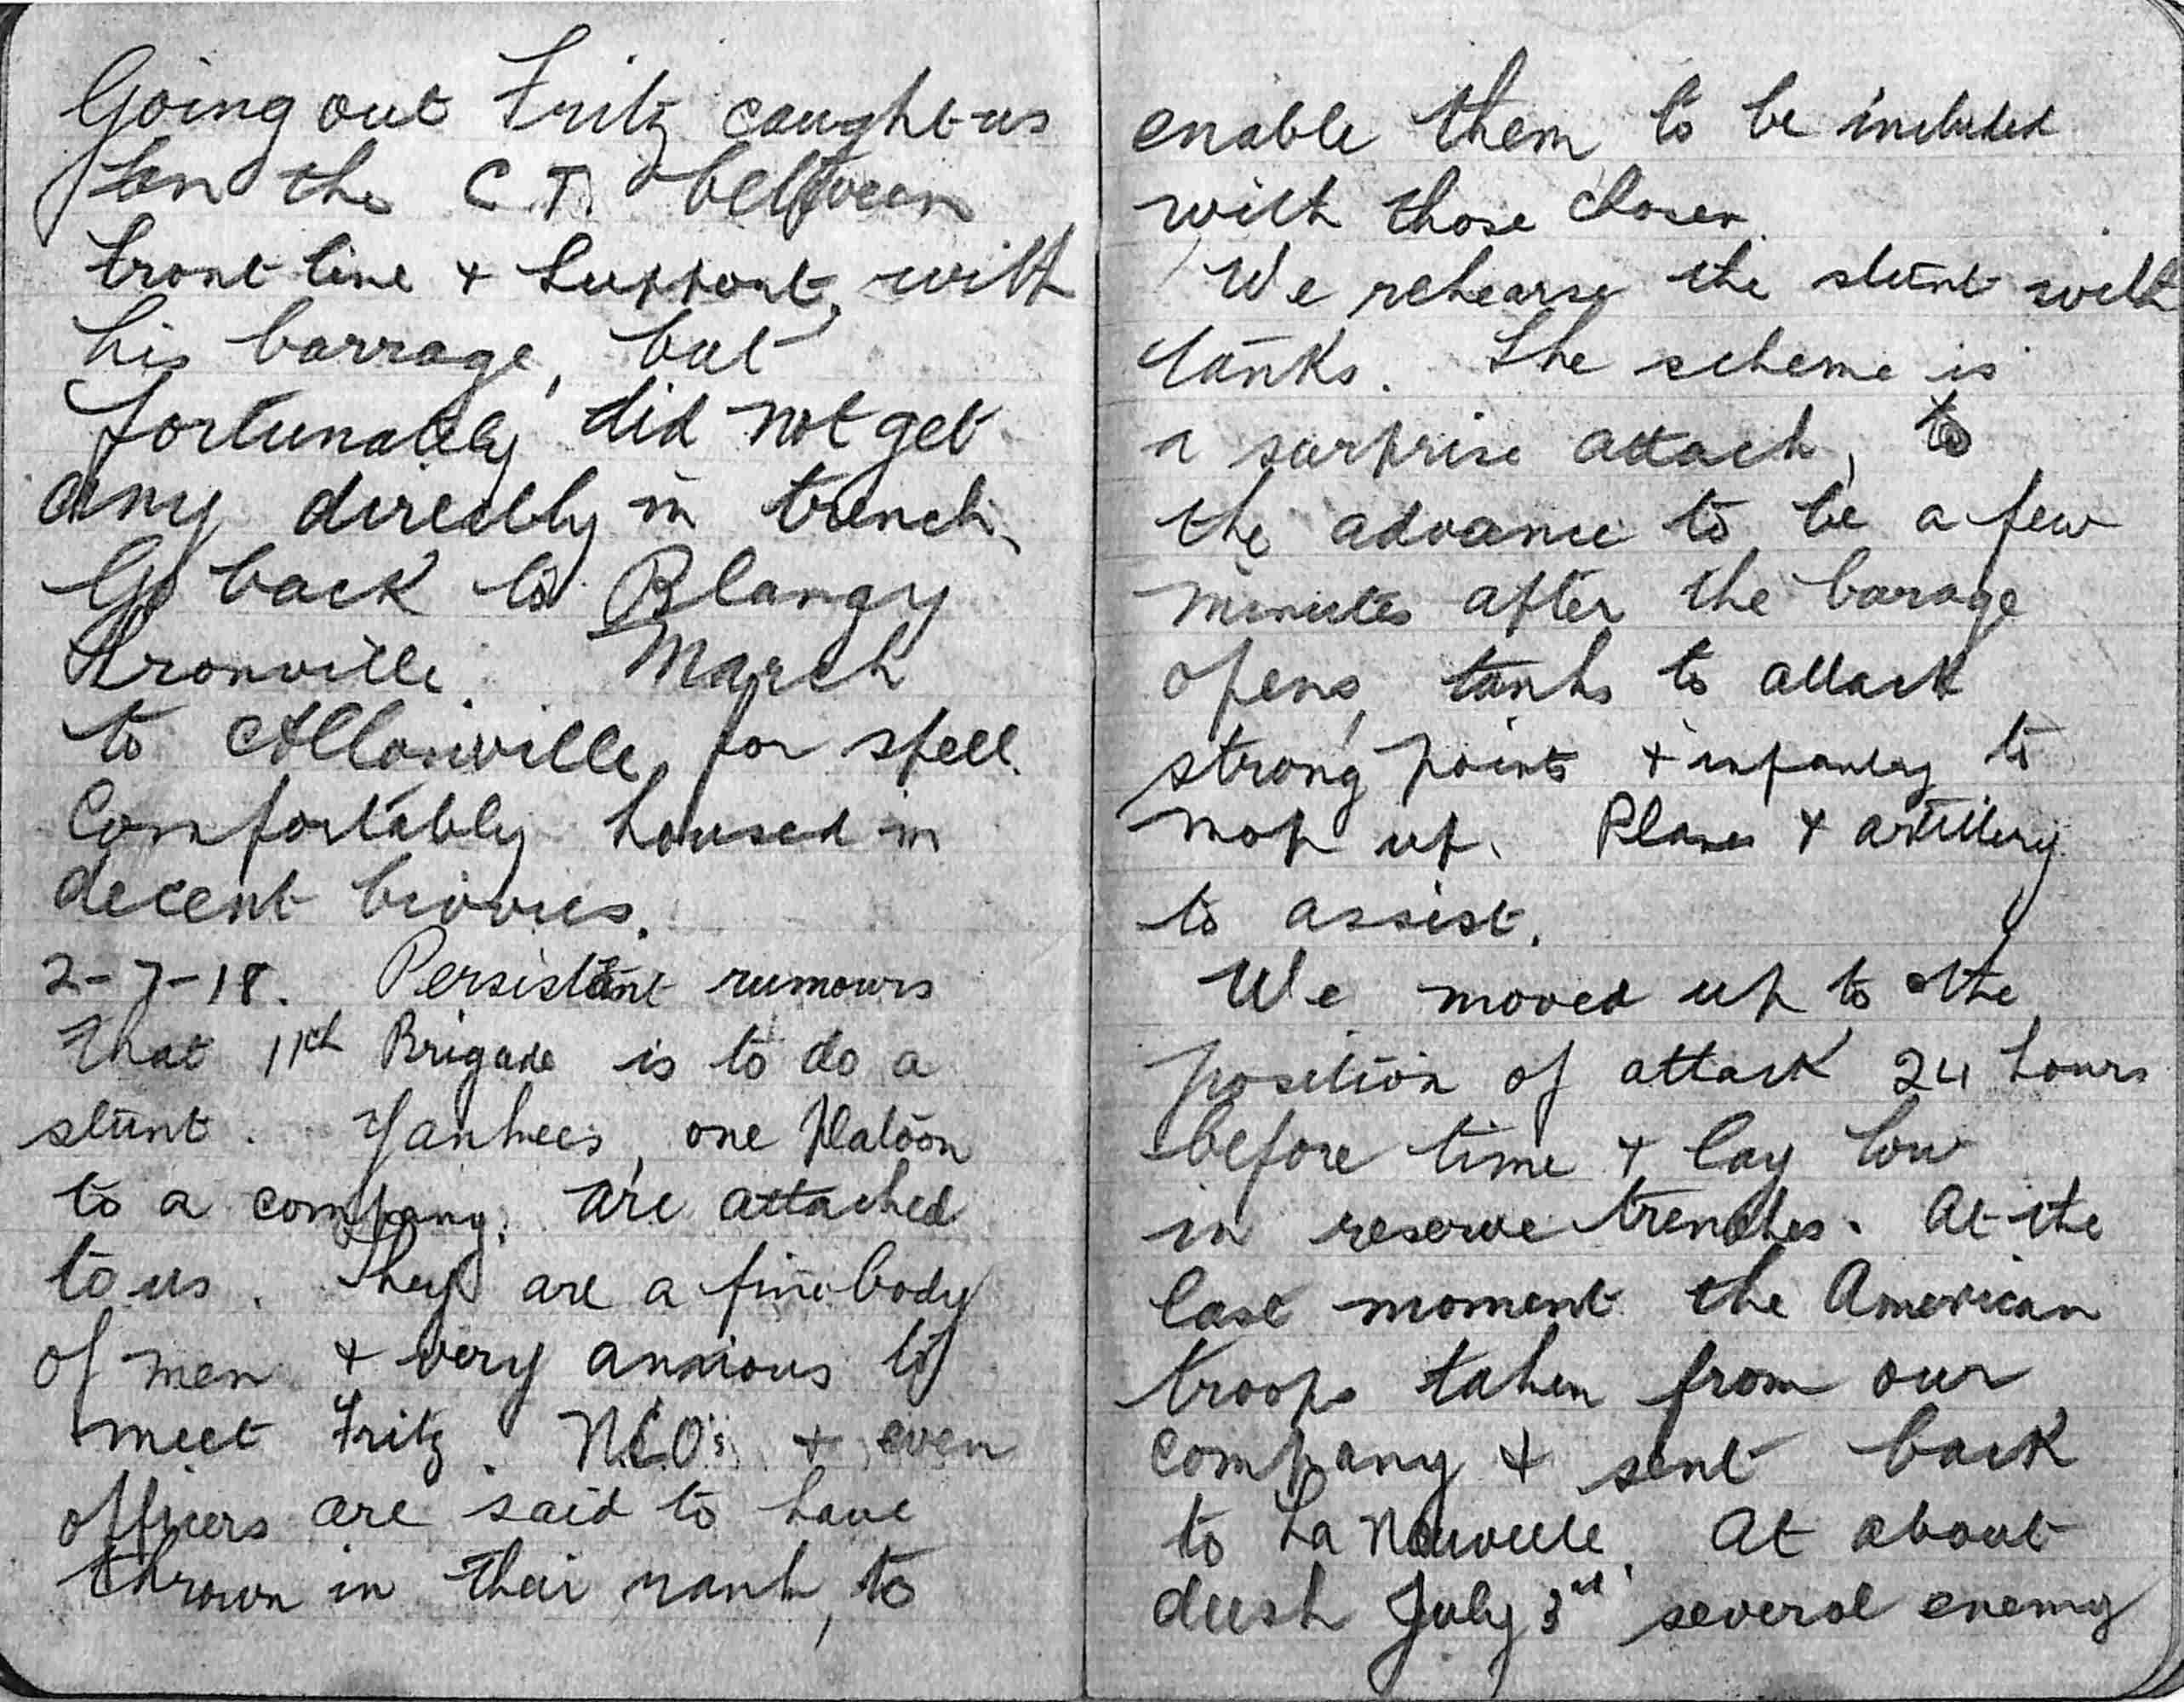 Going out Fritz caught us
in the C.T. between
front line + support, with
his barrage, but
fortunately did not get
any directly in trench.
Go back to Blangy
Tronville. March
to Allonville, for spell.
Comfortably housed in
decent bivvies.
2-7-18. Persistant rumours
that 11th Brigade is to do a
stunt. Yankees, one platoon
to a company, are attached
to us. They are a fine body
of men + very anxious to
meet Fritz. NCO's + even
officers are said to have
thrown in their rank, to
enable them to be included
with those chosen.
We rehearse the stunt with
tanks. The scheme is
a surprise attack,
the advance to be a few
minutes after the barage
opens, tanks to attack
strong points + infantry to
mop up. Planes + artillery
to assist.
We moved up to the
position of attack 24 hours
before time + lay low
in reserve trenches. At the
last moment the American
troops taken from our
company + sent back
to La Nouville. At about
dusk July 3rd several enemy